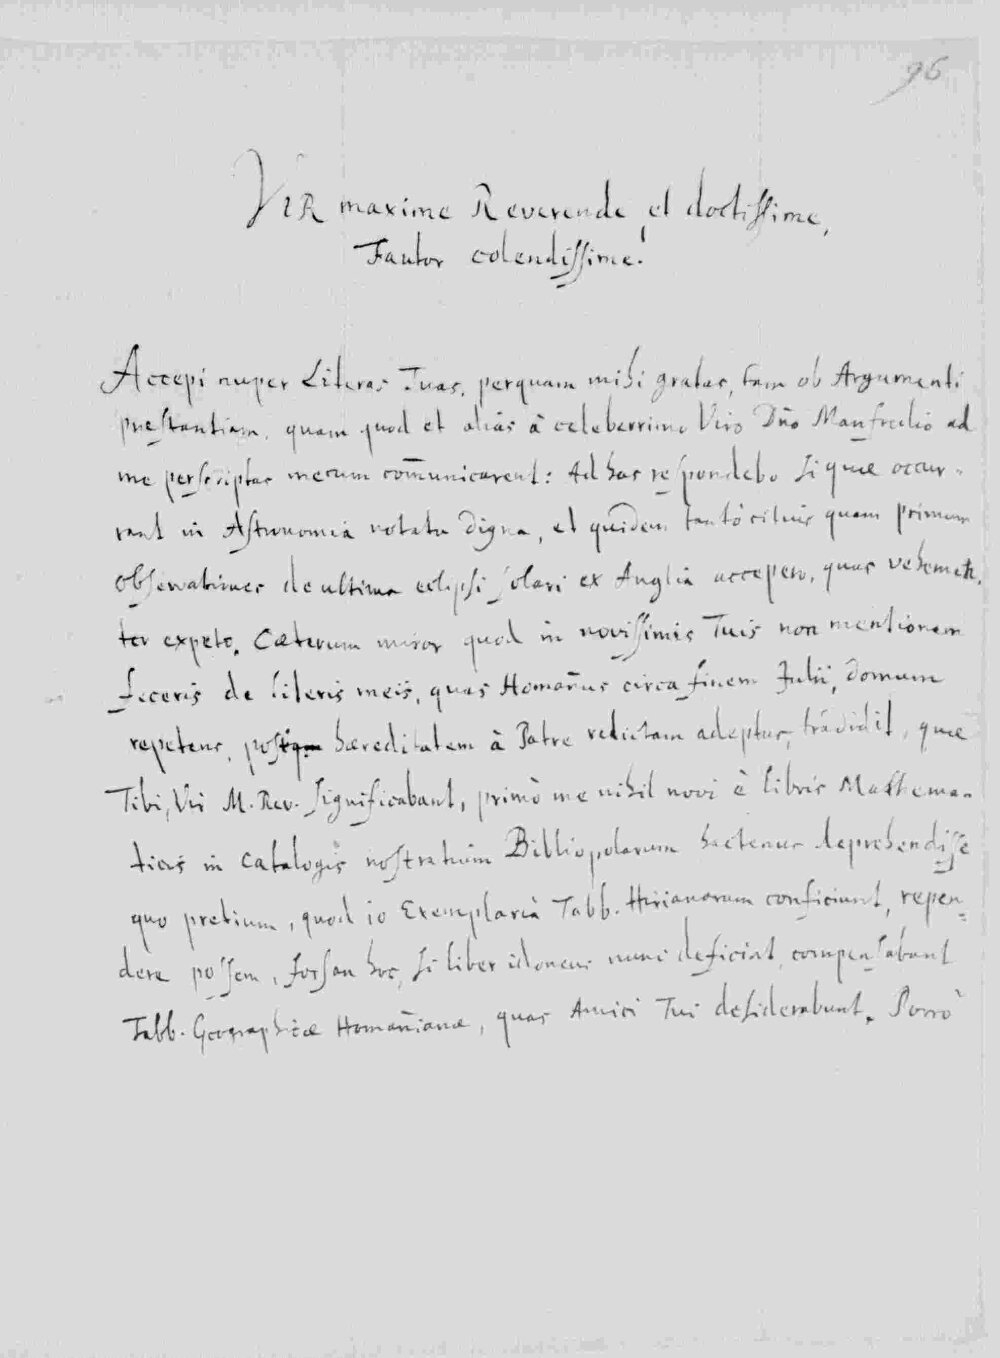 96
VIR maxime Reverende, et doctissime,
Fautor colendissime!
Accepi nuper Literas Tuas, perquam mihi gratas, tam ob Argumenti
præstantiam, quam quod et alias à celeberrimo Viro Dño Manfredio ad
me perscriptas mecum com̄unicarent: Ad has respondebo si quæ occur-
rant in Astronomia notatu digna, et quidem tantò citius quam primum
observationes de ultima eclipsi solari ex Anglia accepero, quas vehemen-
ter expeto. Cæterum miror quod in novissimis Tuis non mentionem
feceris de literis meis, quas Homan̄us circa finem Julii, domum
repetens, hæreditatem à Patre relictam adeptus, tradidit, quæ
Tibi, Vir M. Rev. significabant, primò me nihil novi è libris Mathema-
ticis in catalogis nostratium Bibliopolarum hactenus deprehendisse
quo pretium, quod 10 Exemplaria Tabb. Hirianarum conficiunt, repen-
dere possem, forsan hoc, si liber idoneus nunc deficiat, compensabunt
Tabb. Geographicæ Homan̄ianæ, quas Amici Tui desiderabunt. Porrò